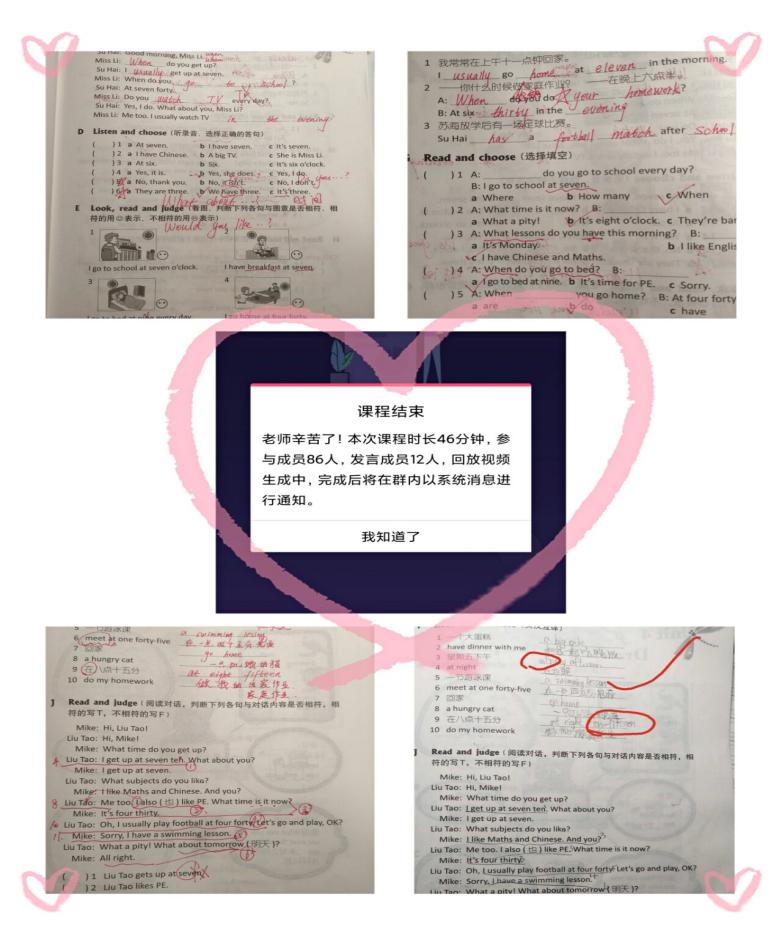 Su Hai: Good morning, Miss Li.
Miss Li: When do you get up?
Su Hai: I usually get up at seven.
Miss Li: When do you go to school?
Su Hai: At seven forty.
Miss Li: Do you watch TV every day?
Su Hai: Yes, I do. What about you, Miss Li?
Miss Li: Me too. I usually watch TV in the evening
D Listen and choose (听录音，选择正确的答句)
( ) 1 a At seven. b I have seven. c It's seven.
( ) 2 a I have Chinese. b A big TV. c She is Miss Li.
( ) 3 a At six. b Six. c It's six o'clock.
( ) 4 a Yes, it is. b Yes, she does. c Yes, I do.
( ) 5 a No, thank you. b No, it isn't. c No, I don't.
( ) 6 a They are three. b We have three. c It's three.
What about ..?
E Look, read and judge (看图，判断下列各句与图意是否相符，相
符的用☺表示，不相符的用☹表示)
Would you like ..?
1 2
I go to school at seven o'clock. I have breakfast at seven.
3 4
I go to bed at nine every day. I go home at four forty.
1 我常常在上午十一点钟回家。
I usually go home at eleven in the morning.
2 ——你什么时候做家庭作业? ——在晚上六点半。
A: When do you do your homework?
B: At six thirty in the evening
3 苏海放学后有一场足球比赛。
Su Hai has a football match after school
Read and choose (选择填空)
( ) 1 A: do you go to school every day?
B: I go to school at seven.
a Where b How many c When
( ) 2 A: What time is it now? B:
a What a pity! b It's eight o'clock. c They're bar
( ) 3 A: What lessons do you have this morning? B:
a It's Monday. b I like Englis
c I have Chinese and Maths.
( ) 4 A: When do you go to bed? B:
a I go to bed at nine. b It's time for PE. c Sorry.
( ) 5 A: When you go home? B: At four forty
a are b do c have
课程结束
老师辛苦了！本次课程时长46分钟，参
与成员86人，发言成员12人，回放视频
生成中，完成后将在群内以系统消息进
行通知。
我知道了
5 一节游泳课
6 meet at one forty-five
7 回家 go home
8 a hungry cat
9 在八点十五分 at eight fifteen
10 do my homework
J Read and judge (阅读对话，判断下列各句与对话内容是否相符，相
符的写T，不相符的写F)
Mike: Hi, Liu Tao!
Liu Tao: Hi, Mike!
Mike: What time do you get up?
Liu Tao: I get up at seven ten. What about you?
Mike: I get up at seven.
Liu Tao: What subjects do you like?
Mike: I like Maths and Chinese. And you?
Liu Tao: Me too. I also (也) like PE. What time is it now?
Mike: It's four thirty.
Liu Tao: Oh, I usually play football at four forty. Let's go and play, OK?
Mike: Sorry, I have a swimming lesson.
Liu Tao: What a pity! What about tomorrow (明天)?
Mike: All right.
( ) 1 Liu Tao gets up at seven.
( ) 2 Liu Tao likes PE.
1 一个大蛋糕
2 have dinner with me
3 星期五下午
4 at night
5 一节游泳课
6 meet at one forty-five
7 回家
8 a hungry cat
9 在八点十五分
10 do my homework
J Read and judge (阅读对话，判断下列各句与对话内容是否相符，相
符的写T，不相符的写F)
Mike: Hi, Liu Tao!
Liu Tao: Hi, Mike!
Mike: What time do you get up?
Liu Tao: I get up at seven ten. What about you?
Mike: I get up at seven.
Liu Tao: What subjects do you like?
Mike: I like Maths and Chinese. And you?
Liu Tao: Me too. I also (也) like PE. What time is it now?
Mike: It's four thirty.
Liu Tao: Oh, I usually play football at four forty. Let's go and play, OK?
Mike: Sorry, I have a swimming lesson.
Liu Tao: What a pity! What about tomorrow (明天)?